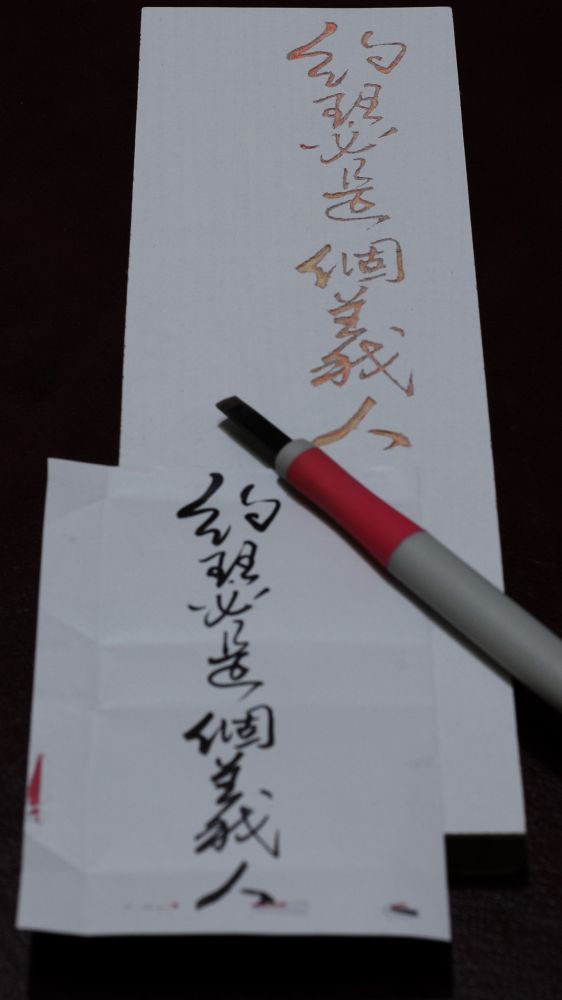 約瑟是個義人
約瑟是個義人